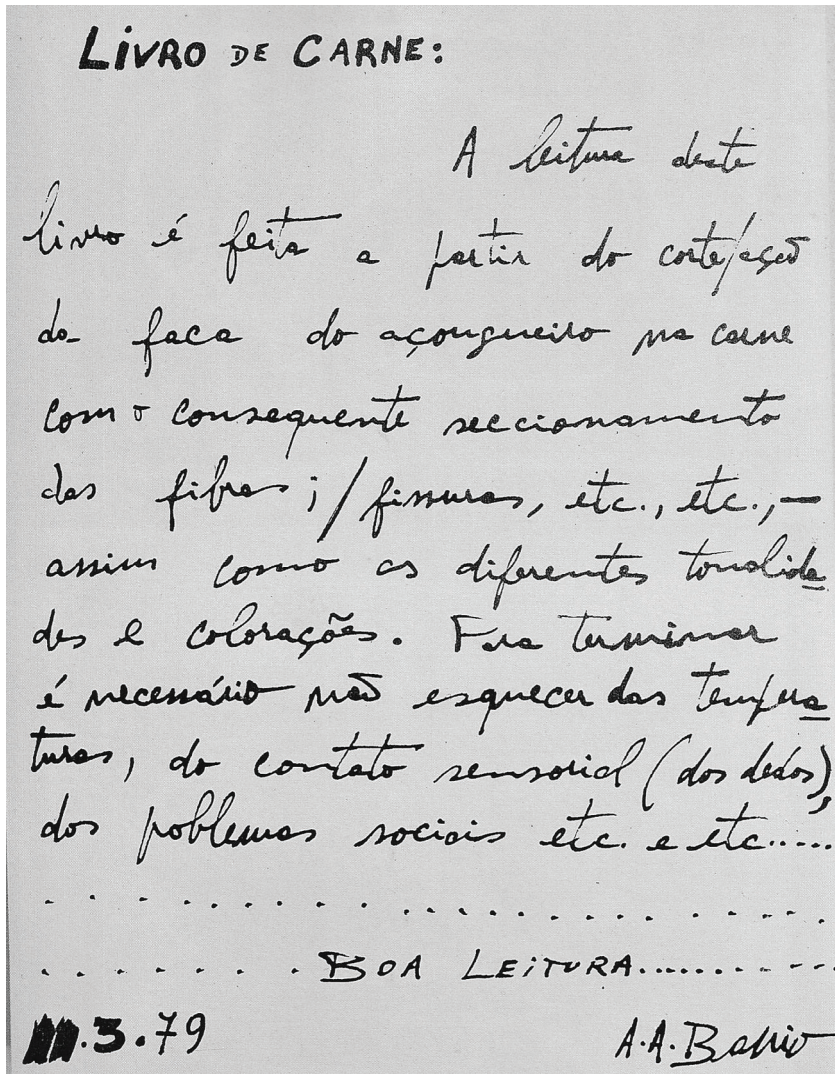 LIVRO DE CARNE:
A leitura deste
livro é feita a partir do corte/ação
da faca do açougueiro na carne
com o consequente seccionamento
das fibras; / fissuras, etc., etc., —
assim como as diferentes tonalida
des e colorações. Para terminar
é necessário não esquecer das tempera
turas, do contato sensorial (dos dedos),
dos problemas sociais etc. e etc.....
. . . . . . . . . . . . . . . . . . . . . . .
. . . . . . . . BOA LEITURA............
.3.79
A.A. Barrio